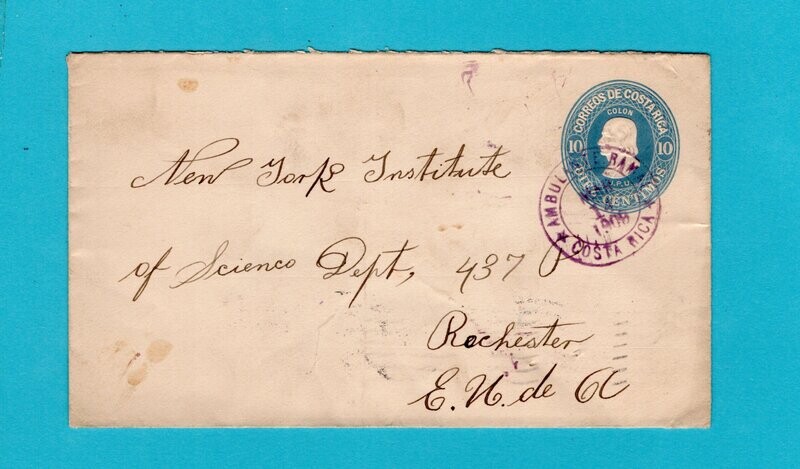 CORREOS DE COSTA RICA
COLON
10 10
U.P.U.
DIEZ CENTIMOS
AMBUL
RAM
1908
COSTA RICA
New York Institute
of Science Dept, 437
Rochester
E. U. de A